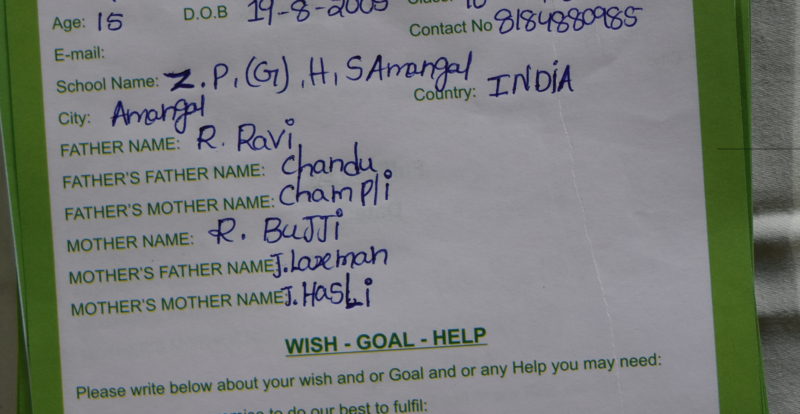 Age: 15 D.O.B 19-8-2009
Contact No 8184880985
E-mail:
School Name: Z.P.(G).H.S Amangal
City: Amangal Country: INDIA
FATHER NAME: R. Ravi
FATHER'S FATHER NAME: Chandu
FATHER'S MOTHER NAME: Champli
MOTHER NAME: R. BUJJi
MOTHER'S FATHER NAME J.Laxeman
MOTHER'S MOTHER NAME J.HASLi
WISH - GOAL - HELP
Please write below about your wish and or Goal and or any Help you may need:
to do our best to fulfil: